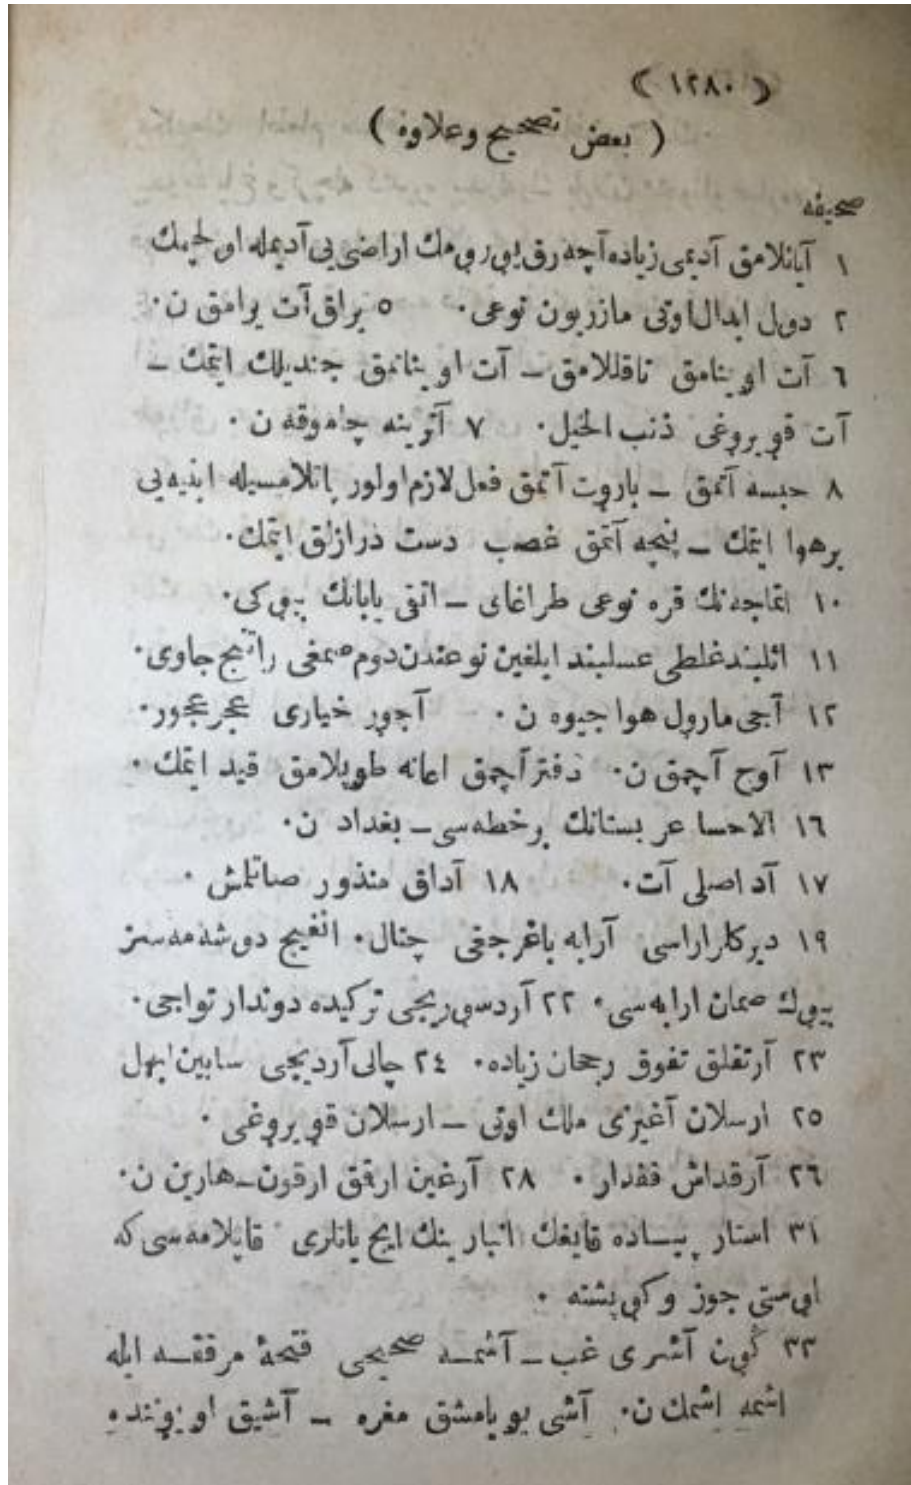 ( ١٢٨٠ )
( بعض تصحیح وعلاوه )
صحیفه
١ آیانلامق آدیمی زیاده آچه رق یورومك اراضی یی آدیمله اولچمك
٢ دول ابدال اوتی مازریون نوعی· ٥ براق آت یراق ن·
٦ آت اوینامق تاقللامق ــ آت اویناتمق جندیلك ایتمك ــ
آت قویروغی ذنب الخیل· ٧ آترینه چاموقه ن·
٨ حبسه آتمق ــ باروت آتمق فعل لازم اولور پاتلامسیله ابنیه یی
برهوا ایتمك ــ پنچه آتمق غصب دست درازلق ایتمك·
١٠ اتماجه نك قره نوعی طراغای ــ اتقی یابانك بیوکی·
١١ اتلبند غلطی عسلبند ایلغین نوعندن دوم صمغی راتبنج جاوی·
١٢ آجی مارول هواجیوه ن· آجور خیاری عجر عجور·
١٣ آوج آچمق ن· دفتر آچمق اعانه طوپلامق قید ایتمك·
١٦ الاحسا عربستانك برخطه سی ــ بغداد ن·
١٧ آد اصلی آت· ١٨ آداق منذور صاتلمش·
١٩ دیرکلر اراسی آرابه باغرجقی چتال· انغیج دوشه مه سز
بیوك صمان ارابه سی· ٢٢ آردسوریجی ترکیده دوندار تواجی·
٢٣ آرتقلق تفوق رجحان زیاده· ٢٤ چالی آردیجی سابین ابهل
٢٥ ارسلان آغیزی ملك اوتی ــ ارسلان قویروغی·
٢٦ آرقداش فقدار· ٢٨ آرغین ارقق ارقون ــ هارین ن·
٣١ استار پیساده قایغك انبارینك ایچ یانلری قاپلامه سی که
اوستی جوز و کوپشته·
٣٣ گون آشری غب ــ آشمه صحیحی فتحهٔ مرققه ایله
اشمه اشمك ن· آشی بویامشق مغره ــ آشیق اویوننده